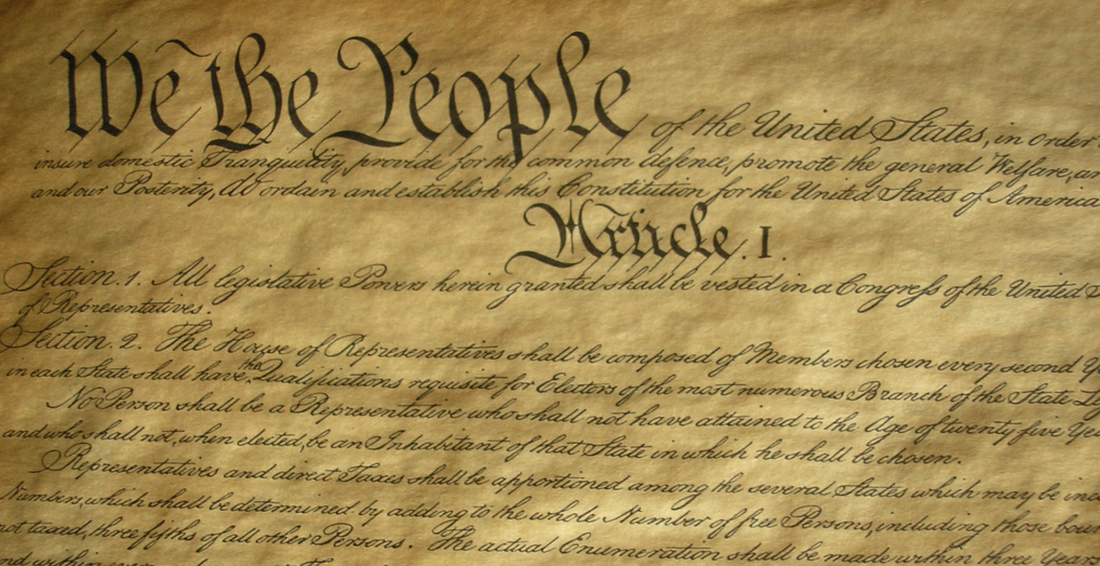 We the People of the United States, in Order
insure domestic Tranquility, provide for the common defence, promote the general Welfare, an
and our Posterity, do ordain and establish this Constitution for the United States of America
Article. I.
Section. 1. All legislative Powers herein granted shall be vested in a Congress of the United
of Representatives.
Section. 2. The House of Representatives shall be composed of Members chosen every second Y
in each State shall have the Qualifications requisite for Electors of the most numerous Branch of the State
No Person shall be a Representative who shall not have attained to the Age of twenty five Yea
and who shall not, when elected, be an Inhabitant of that State in which he shall be chosen.
Representatives and direct Taxes shall be apportioned among the several States which may be inc
Numbers, which shall be determined by adding to the whole Number of free Persons, including those boun
not taxed, three fifths of all other Persons. The actual Enumeration shall be made within three Years